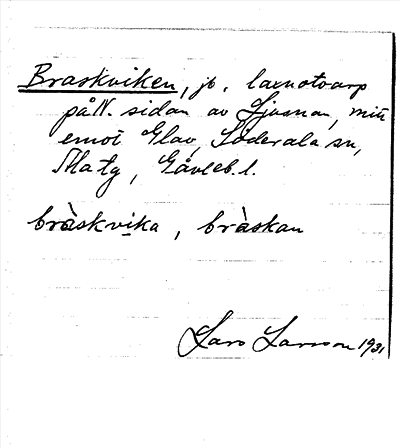 Braskviken, jb. laxnotvarp
på N. sidan av Ljusnan, mitt
emot Glav, Söderala sn,
Gävleb. l.
bràskvika, bràskan
Lars Larsson 1931